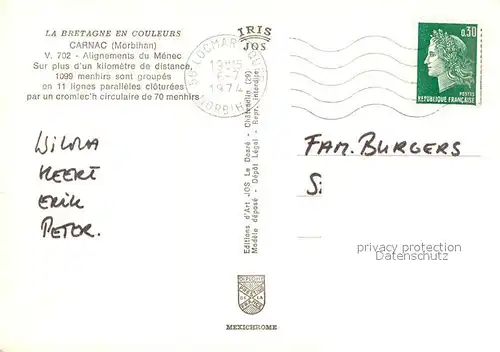 LA BRETAGNE EN COULEURS
CARNAC (Morbihan)
V. 702 - Alignements du Ménec
Sur plus d'un kilomètre de distance,
1099 menhirs sont groupés
en 11 lignes parallèles clôturées
par un cromlec'h circulaire de 70 menhirs
IRIS
JOS
56 LOCMARIAQUER
1974
MORBIHAN
0,30
POSTES
RÉPUBLIQUE FRANÇAISE
WILMA
ERIK
PETER.
FAM. BURGERS
S:
privacy protection
www.ansichtskartenversand.com
Editions d'Art JOS Le Doaré - Châteaulin (29)
Modèle déposé - Dépôt Légal - Repr. interdite
MEXICHROME